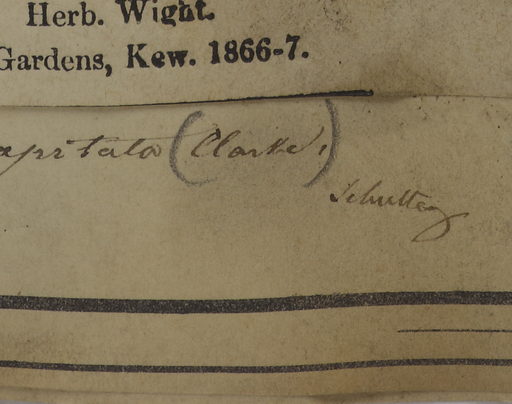 Herb. Wight.
Gardens, Kew. 1866-7.
apitata (Clarke)
Schultes